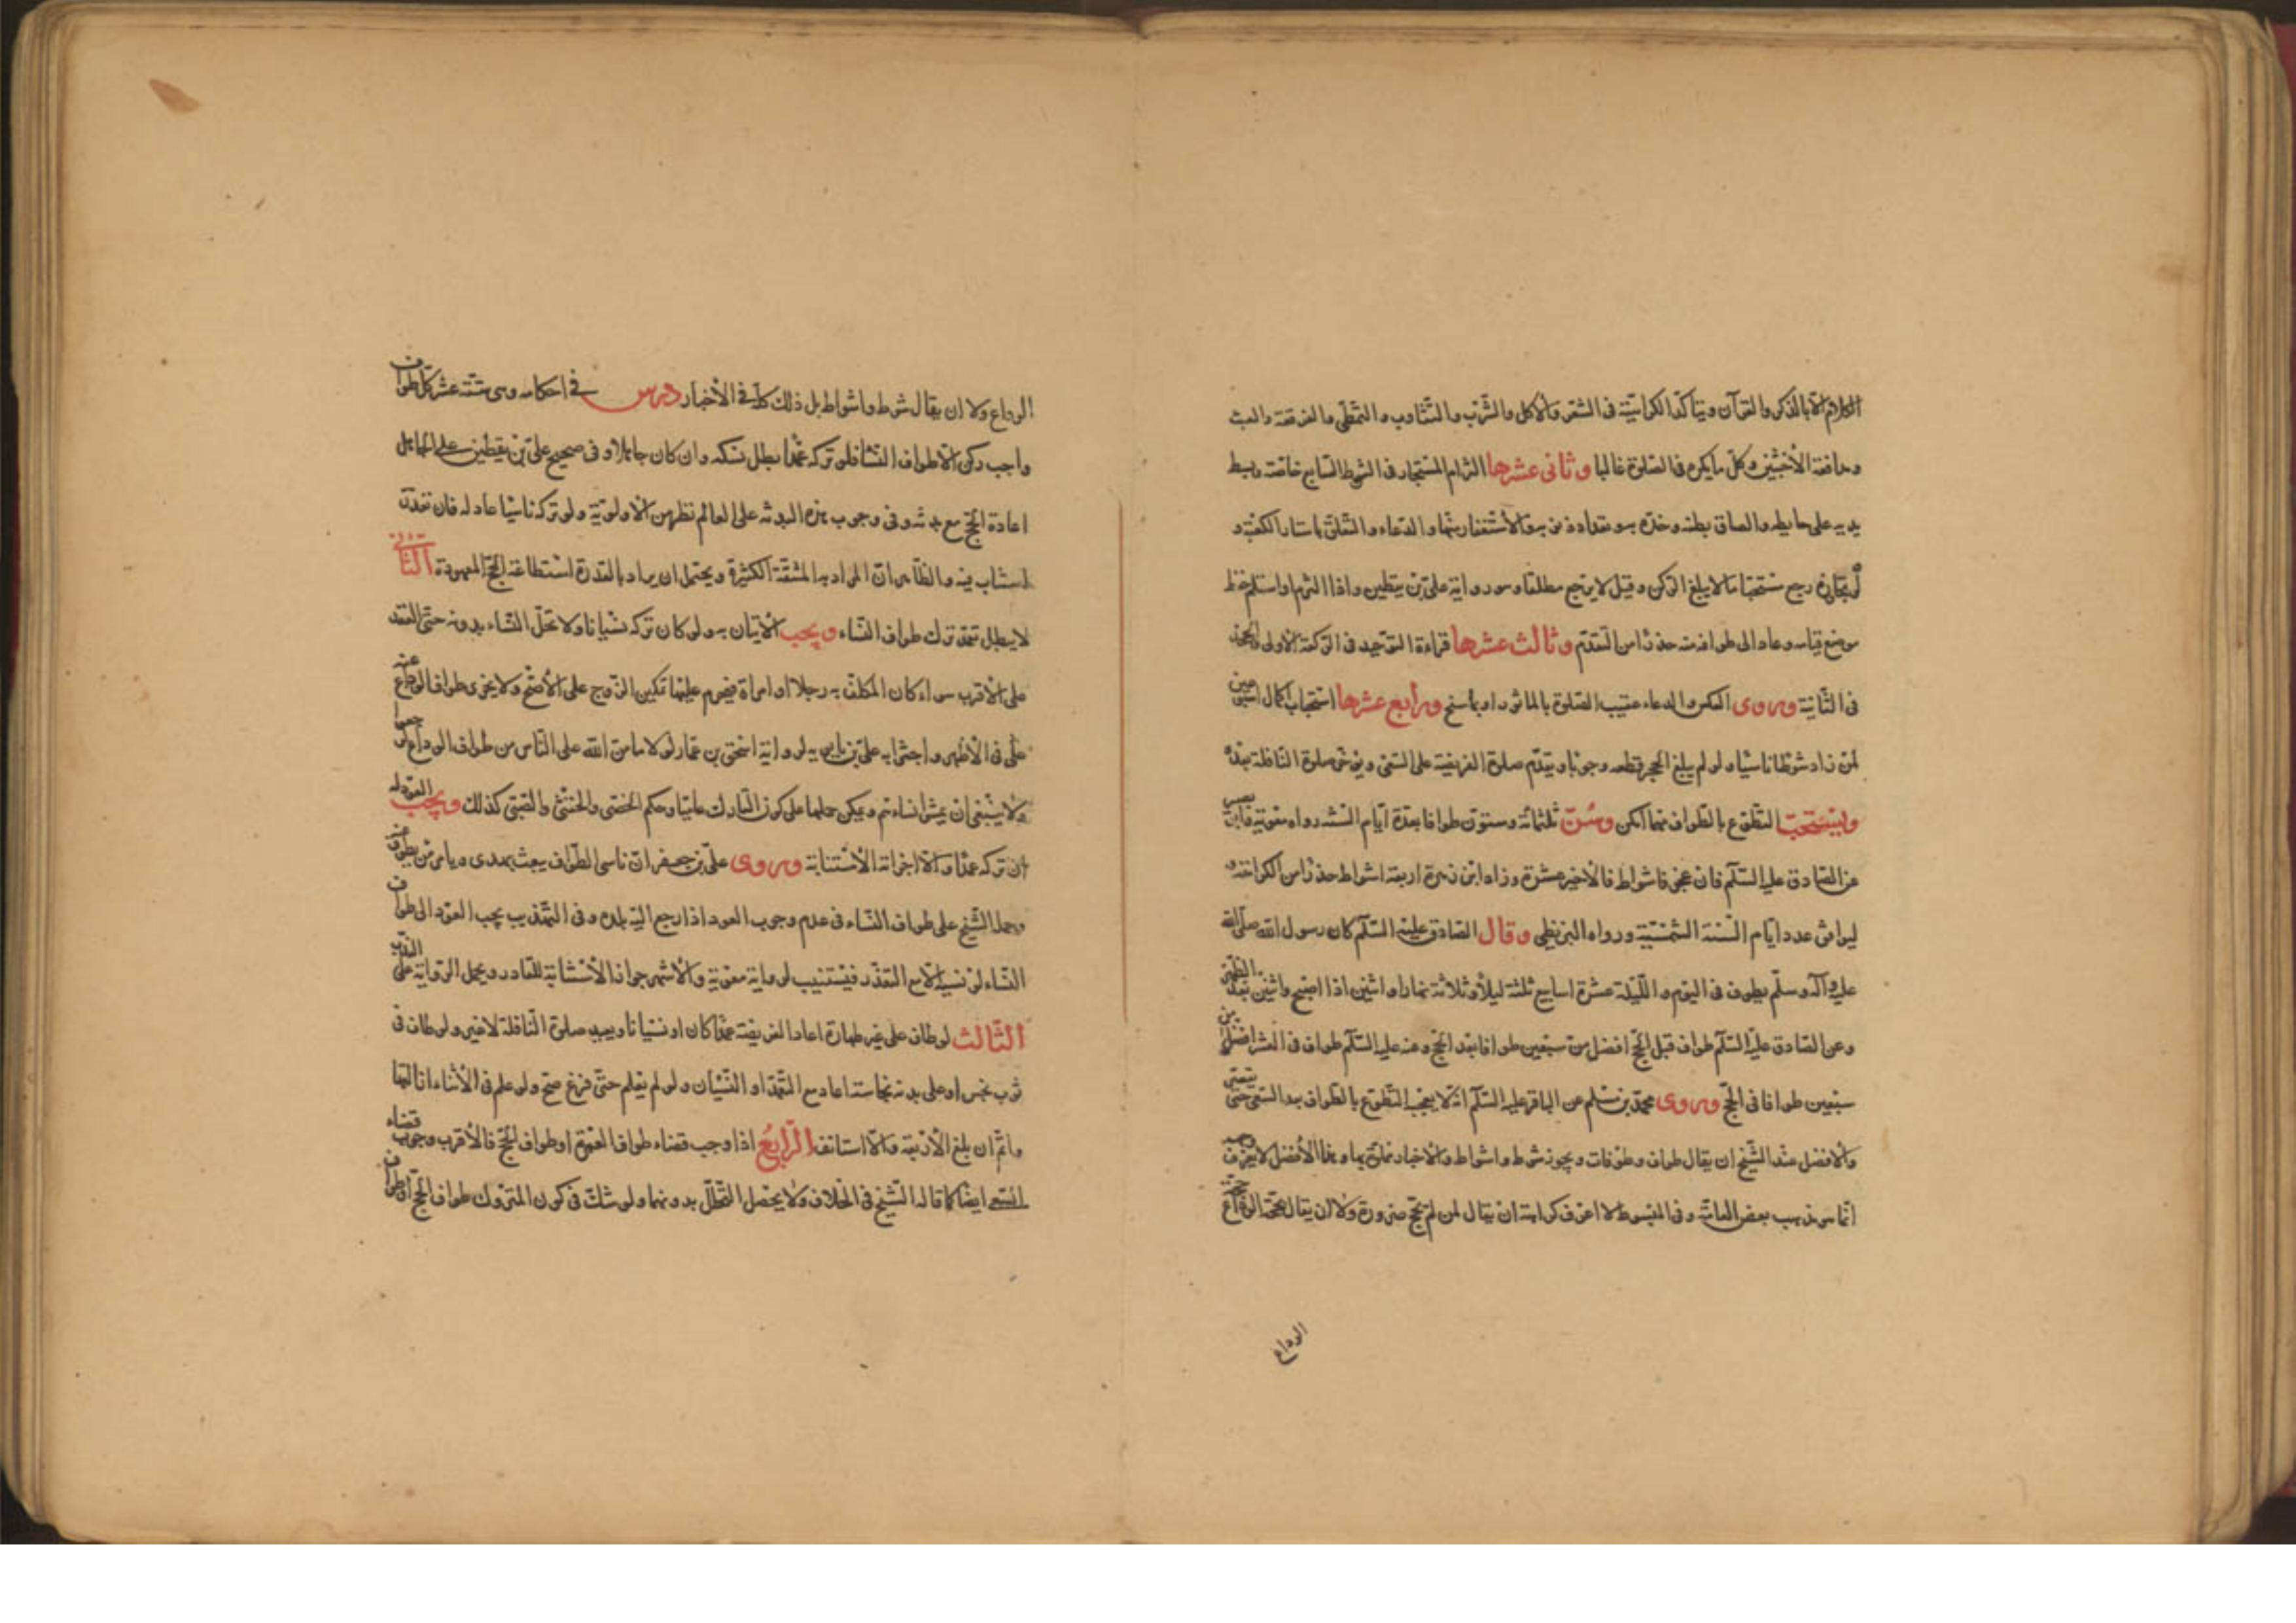 الكلام الا بالذكر والقرآن ويتأكد الكراهية في الشعر والأكل والشرب والتثاوب والتمطي والفرقعة والعبث
ومدافعة الأخبثين وكل ما يكره في الصلوة غالبا وثاني عشرها التزام المستجار في الشوط السابع خاصة وبسط
يديه على حايطه والصاق بطنه وخده به وتعداد ذنوبه والاستغفار منها والدعاء والتعلق باستار الكعبة و
لو تجاوزه رجع مستحبا ما لا يبلغ الركن وقيل لا يرجع مطلقا وهو رواية علي بن يقطين واذا التزم او استلم حفظ
موضع قيامه وعاد الى طوافه منه حذرا من التقدم وثالث عشرها قراءة التوحيد في الركعة الأولى والجحد
في الثانية وروى العكس والدعاء عقيب الصلوة بالماثور او بما سنح ورابع عشرها استحباب اكمال اسبوعين
لمن زاد شوطا ناسيا ولو لم يبلغ الحجر قطعه وجوبا ويقدم صلوة الفريضة على السعي ويؤخر صلوة النافلة بعده
ويستحب التطوع بالطواف مهما امكن وسن ثلثمائة وستون طوافا بعدة ايام السنة رواه معوية وابو بصير
عن الصادق عليه السلم فان عجز فاشواط فالأخير عشرة وزاد ابن زهرة اربعة اشواط حذرا من الكراهة و
ليوافق عدد ايام السنة الشمسية ورواه البزنطي وقال الصادق عليه السلم كان رسول الله صلى الله
عليه وآله وسلم يطوف في اليوم والليلة عشرة اسابيع ثلثة ليلا وثلاثة نهارا واثنين اذا اصبح واثنين بعد الظهر
وعن الصادق عليه السلم طواف قبل الحج افضل من سبعين طوافا بعد الحج وعنه عليه السلم طواف في العشر افضل من
سبعين طوافا في الحج وروى محمد بن مسلم عن الباقر عليه السلم انه لا يعجب التطوع بالطواف بعد السعي حتى يقصر
والافضل عند الشيخ ان يقال طواف وطوفات ويجوز شوط واشواط والاخبار مملوة بهما وهذا الأفضل لا يعرف وجهه
انما هو مذهب بعض العامة وفي المبسوط لا اعرف كراهة ان يقال لمن لم يحج صرورة ولا ان يقال حجة الوداع
الوداع
الوداع ولا ان يقال شوط واشواط بل ذلك كله في الأخبار درس في احكامه وهي ستة عشر كل طواف
واجب ركن الا طواف النساء فلو تركه عمدا بطل نسكه وان كان جاهلا وفي صحيح علي بن يقطين على الجاهل
اعادة الحج مع بدنه وفي وجوب هذه البدنة على العالم نظر من الاولوية ولو تركه ناسيا عاد له فان تعذر
استناب فيه والظاهر ان المراد به المشقة الكثيرة ويحتمل ان يراد بالقدرة استطاعة الحج المعهودة الثاني
لا يبطل بتعمد ترك طواف النساء ويجب الاتيان به ولو كان تركه نسيانا ولا تحل النساء بدونه حتى العقد
على الأقرب سواء كان المكلف به رجلا او امراة فيحرم عليها تمكين الزوج على الأصح ولا يجزى طواف الوداع عنه
على في الأظهر واجتزا به علي بن بابويه لرواية اسحق بن عمار لولا ما من الله على الناس من طواف الوداع لرجعوا
ولا ينبغي ان يمسوا نساءهم ويمكن حملها على كون التارك عاميا وحكم الخصى والخنثى والصبي كذلك ويجب العود له
ان تركه عمدا والا اجزاته الاستنابة وروى علي بن جعفر ان ناسى الطواف يبعث بهدى ويامر من يطوف عنه
وحمله الشيخ على طواف النساء في عدم وجوب العود اذا رجع الى بلده وفي التهذيب يجب العود الى طواف
النساء لو نسيه الا مع التعذر فيستنيب لرواية معوية والأشهر جواز الاستنابة للقادر ويحمل الرواية على الندب
الثالث لو طاف على غير طهارة اعاد الفريضة عمدا كان او نسيانا ويعيد صلوة النافلة لا غير ولو طاف في
ثوب نجس او على بدنه نجاسة اعاد مع التعمد او النسيان ولو لم يعلم حتى فرغ صح ولو علم في الأثناء ازالها
واتم ان بلغ الأربعة والا استانف الرابع اذا وجب قضاء طواف العمرة او طواف الحج فالأقرب وجوب قضاء
السعي ايضا كما قاله الشيخ في الخلاف ولا يحصل التحلل بدونهما ولو شك في كون المتروك طواف الحج او طواف